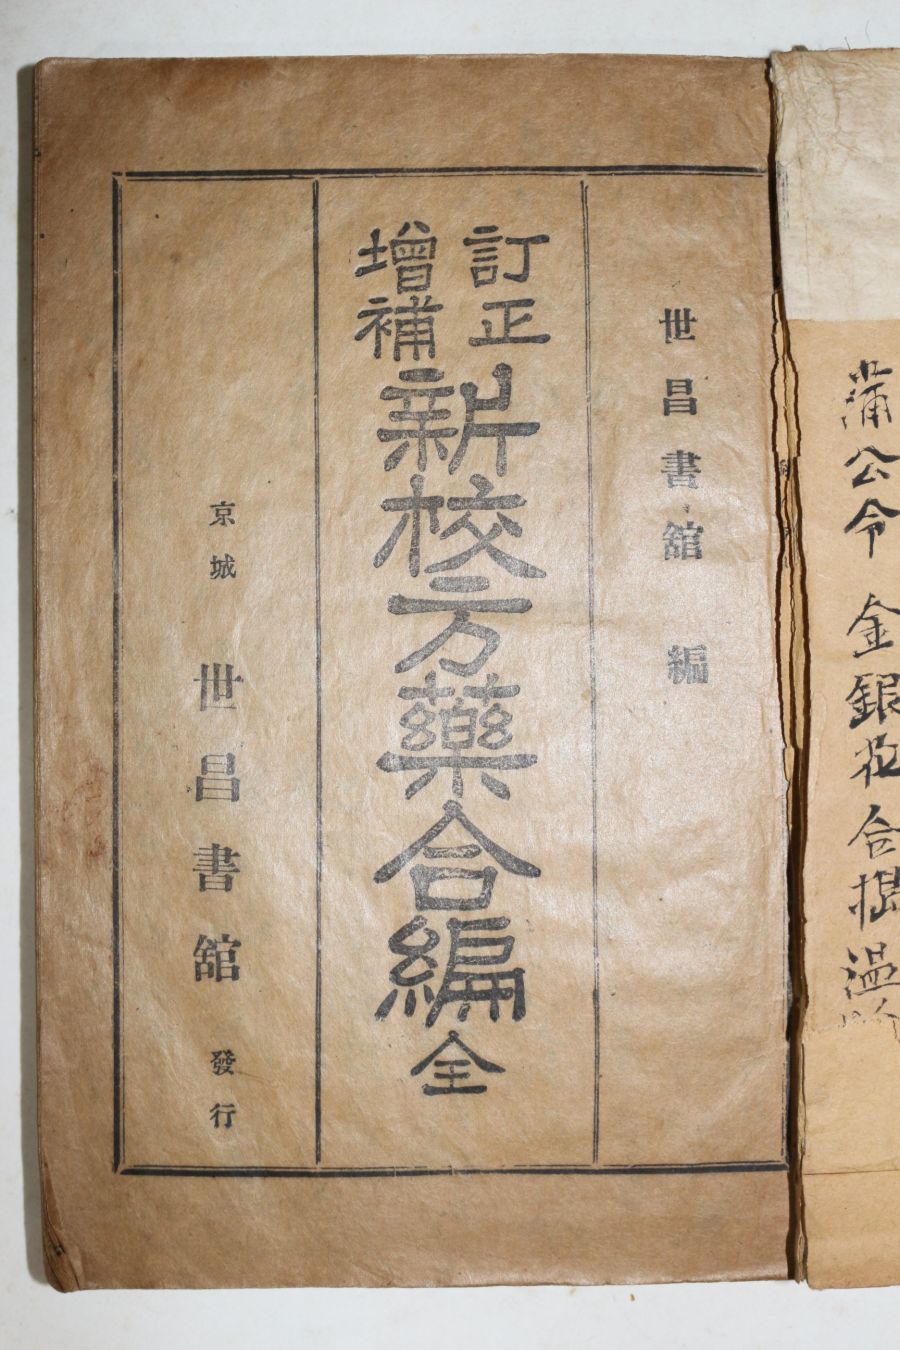 蒲公令 金銀花 合根 温
世昌書舘 編
訂正
增補
新校方藥合編全
京城 世昌書舘 發行